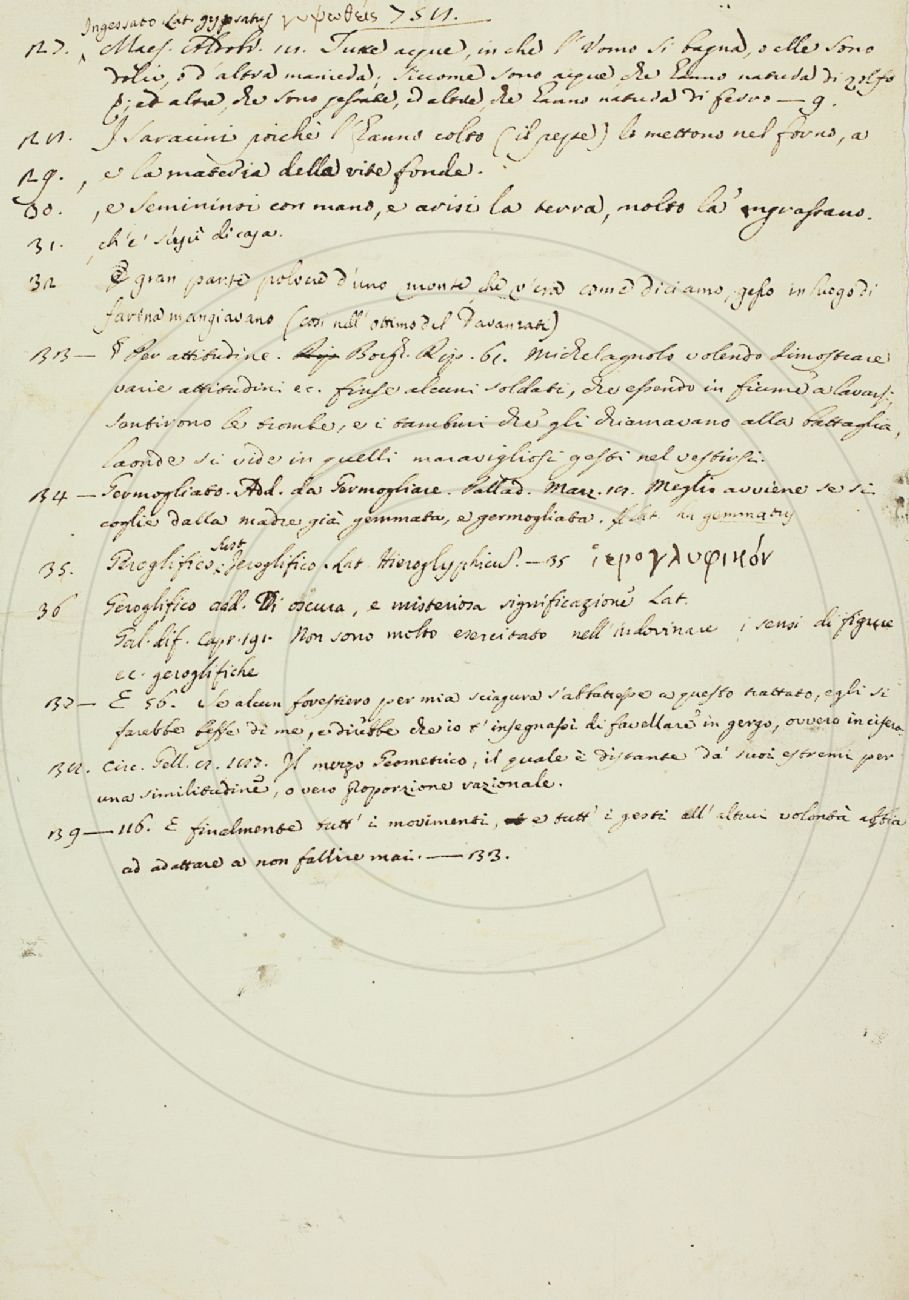 Ingessato. Lat. gypsatus γυψωθείς 7511.
127. Maes. Aldobr. Tutte acque, in che l'Uomo si bagna, o elle sono
dolci, o d'altra maniera; siccome sono acque, che hanno natura di zolfo
ed altre, che sono pesate, ed altre, che hanno natura di ferro — 9.
I Saracini poichè l'hanno colto (il pepe) lo mettono nel forno, a
29. , e la materia della vite fonde.
30. , e semininsi con mano, e arisi la terra, molto la 'ngrassano.
31. , ch'e' s'usi di casa.
32 E gran parte polvere d'uno monte, che v'era come diciamo, gesso in luogo di
farina mangiavano (così nell'ottimo del Davanzati)
133 — § Per attitudine. Borgh. Rip. 61. Michelagnolo volendo dimostrare
varie attitudini ec. finse alcuni soldati, che essendo in fiume a lavarsi,
sentirono le trombe, e i tamburi che gli chiamavano alla battaglia,
laonde si vide in quelli maravigliosi gesti nel vestirsi.
134 — Germogliato. Add. da Germogliare. Pallad. Marz. Meglio avviene se si
coglie dalla madre già gemmata, e germogliata. § Lat. gemmatus
35. Geroglifico, Sust. Jeroglifico. Lat. Hieroglyphicus. — 35 ἱερογλυφικόν
36 Geroglifico add. Di oscura, e misteriosa significazione Lat.
Gal. dif. Capr. 191. Non sono molto esercitato nell'indovinare i sensi di figure
ec. geroglifiche
137 — E 56. Se alcun forestiero per mia sciagura s'abbattesse a questo trattato, egli si
farebbe beffe di me, e direbbe che io t'insegnassi di favellare in gergo, ovvero in cifera.
Circ. Gell. Il mezzo Geometrico, il quale è distante da' suoi estremi per
una similitudine, o vero proporzione razionale.
139 — 116. E finalmente tutt'i movimenti, e tutt'i gesti all'altrui volontà abbia
ad adattare a non fallire mai. — 133.